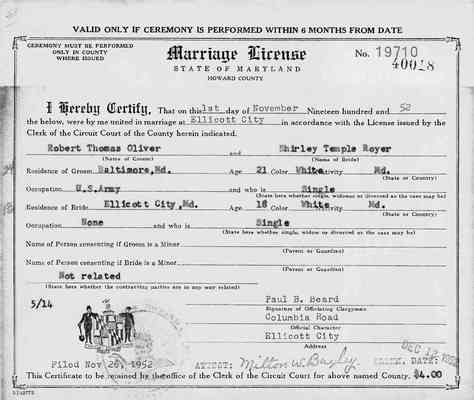 VALID ONLY IF CEREMONY IS PERFORMED WITHIN 6 MONTHS FROM DATE
CEREMONY MUST BE PERFORMED
ONLY IN COUNTY
WHERE ISSUED
Marriage License
STATE OF MARYLAND
HOWARD COUNTY
No. 19710
I Hereby Certify, That on this 1st day of November Nineteen hundred and 52
the below, were by me united in marriage at Ellicott City in accordance with the License issued by the
Clerk of the Circuit Court of the County herein indicated.
Robert Thomas Oliver and Shirley Temple Royer
(Name of Groom) (Name of Bride)
Residence of Groom Baltimore, Md. Age 21 Color White Nativity Md.
(State or County)
Occupation U.S. Army and who is Single
(State here whether single, widower or divorced as the case may be)
Residence of Bride Ellicott City, Md. Age 18 Color White Nativity Md.
(State or County)
Occupation None and who is Single
(State here whether single, widow or divorced as the case may be)
Name of Person consenting if Groom is a Minor
(Parent or Guardian)
Name of Person consenting if Bride is a Minor
(Parent or Guardian)
Not related
(State here whether the contracting parties are in any way related)
5/14
Paul B. Beard
Signature of Officiating Clergyman
Columbia Road
Official Character
Ellicott City
Address
Filed Nov 26, 1952 ATTEST: CLERK. DATE:
This Certificate to be retained by the office of the Clerk of the Circuit Court for above named County. $4.00